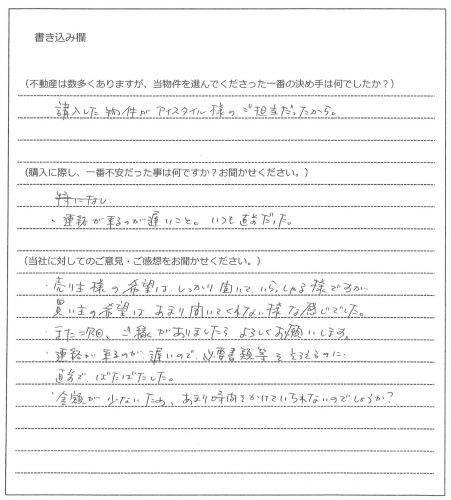 書き込み欄
（不動産は数多くありますが、当物件を選んでくださった一番の決め手は何でしたか？）
購入した物件がアイスタイル様のご担当だったから。
（購入に際し、一番不安だった事は何ですか？お聞かせください。）
特になし
・連絡が来るのが遅いこと。いつも直前だった。
（当社に対してのご意見・ご感想をお聞かせください。）
・売り主様の希望は、しっかり聞いていらっしゃる様ですが
買い主の希望はあまり聞いてくれない様な感じでした。
・また次回、ご縁がありましたらよろしくお願いします。
・連絡が来るのが遅いので、必要書類等をそろえるのに
直前で、ばたばたした。
・金額が少ないため、あまり時間をかけていられないのでしょうか？